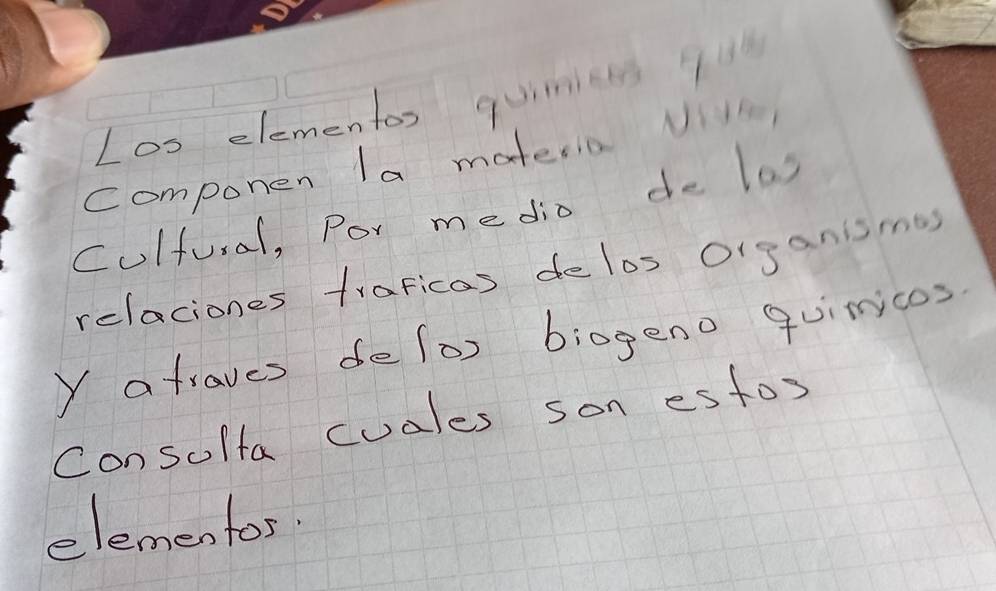 Los elementos quimicos que
componen la materia viva,
Cultural, Por medio de las
relaciones traficas de los organismos
y atraves de los biogeno quimicos.
Consulta cuales son estos
elementos.